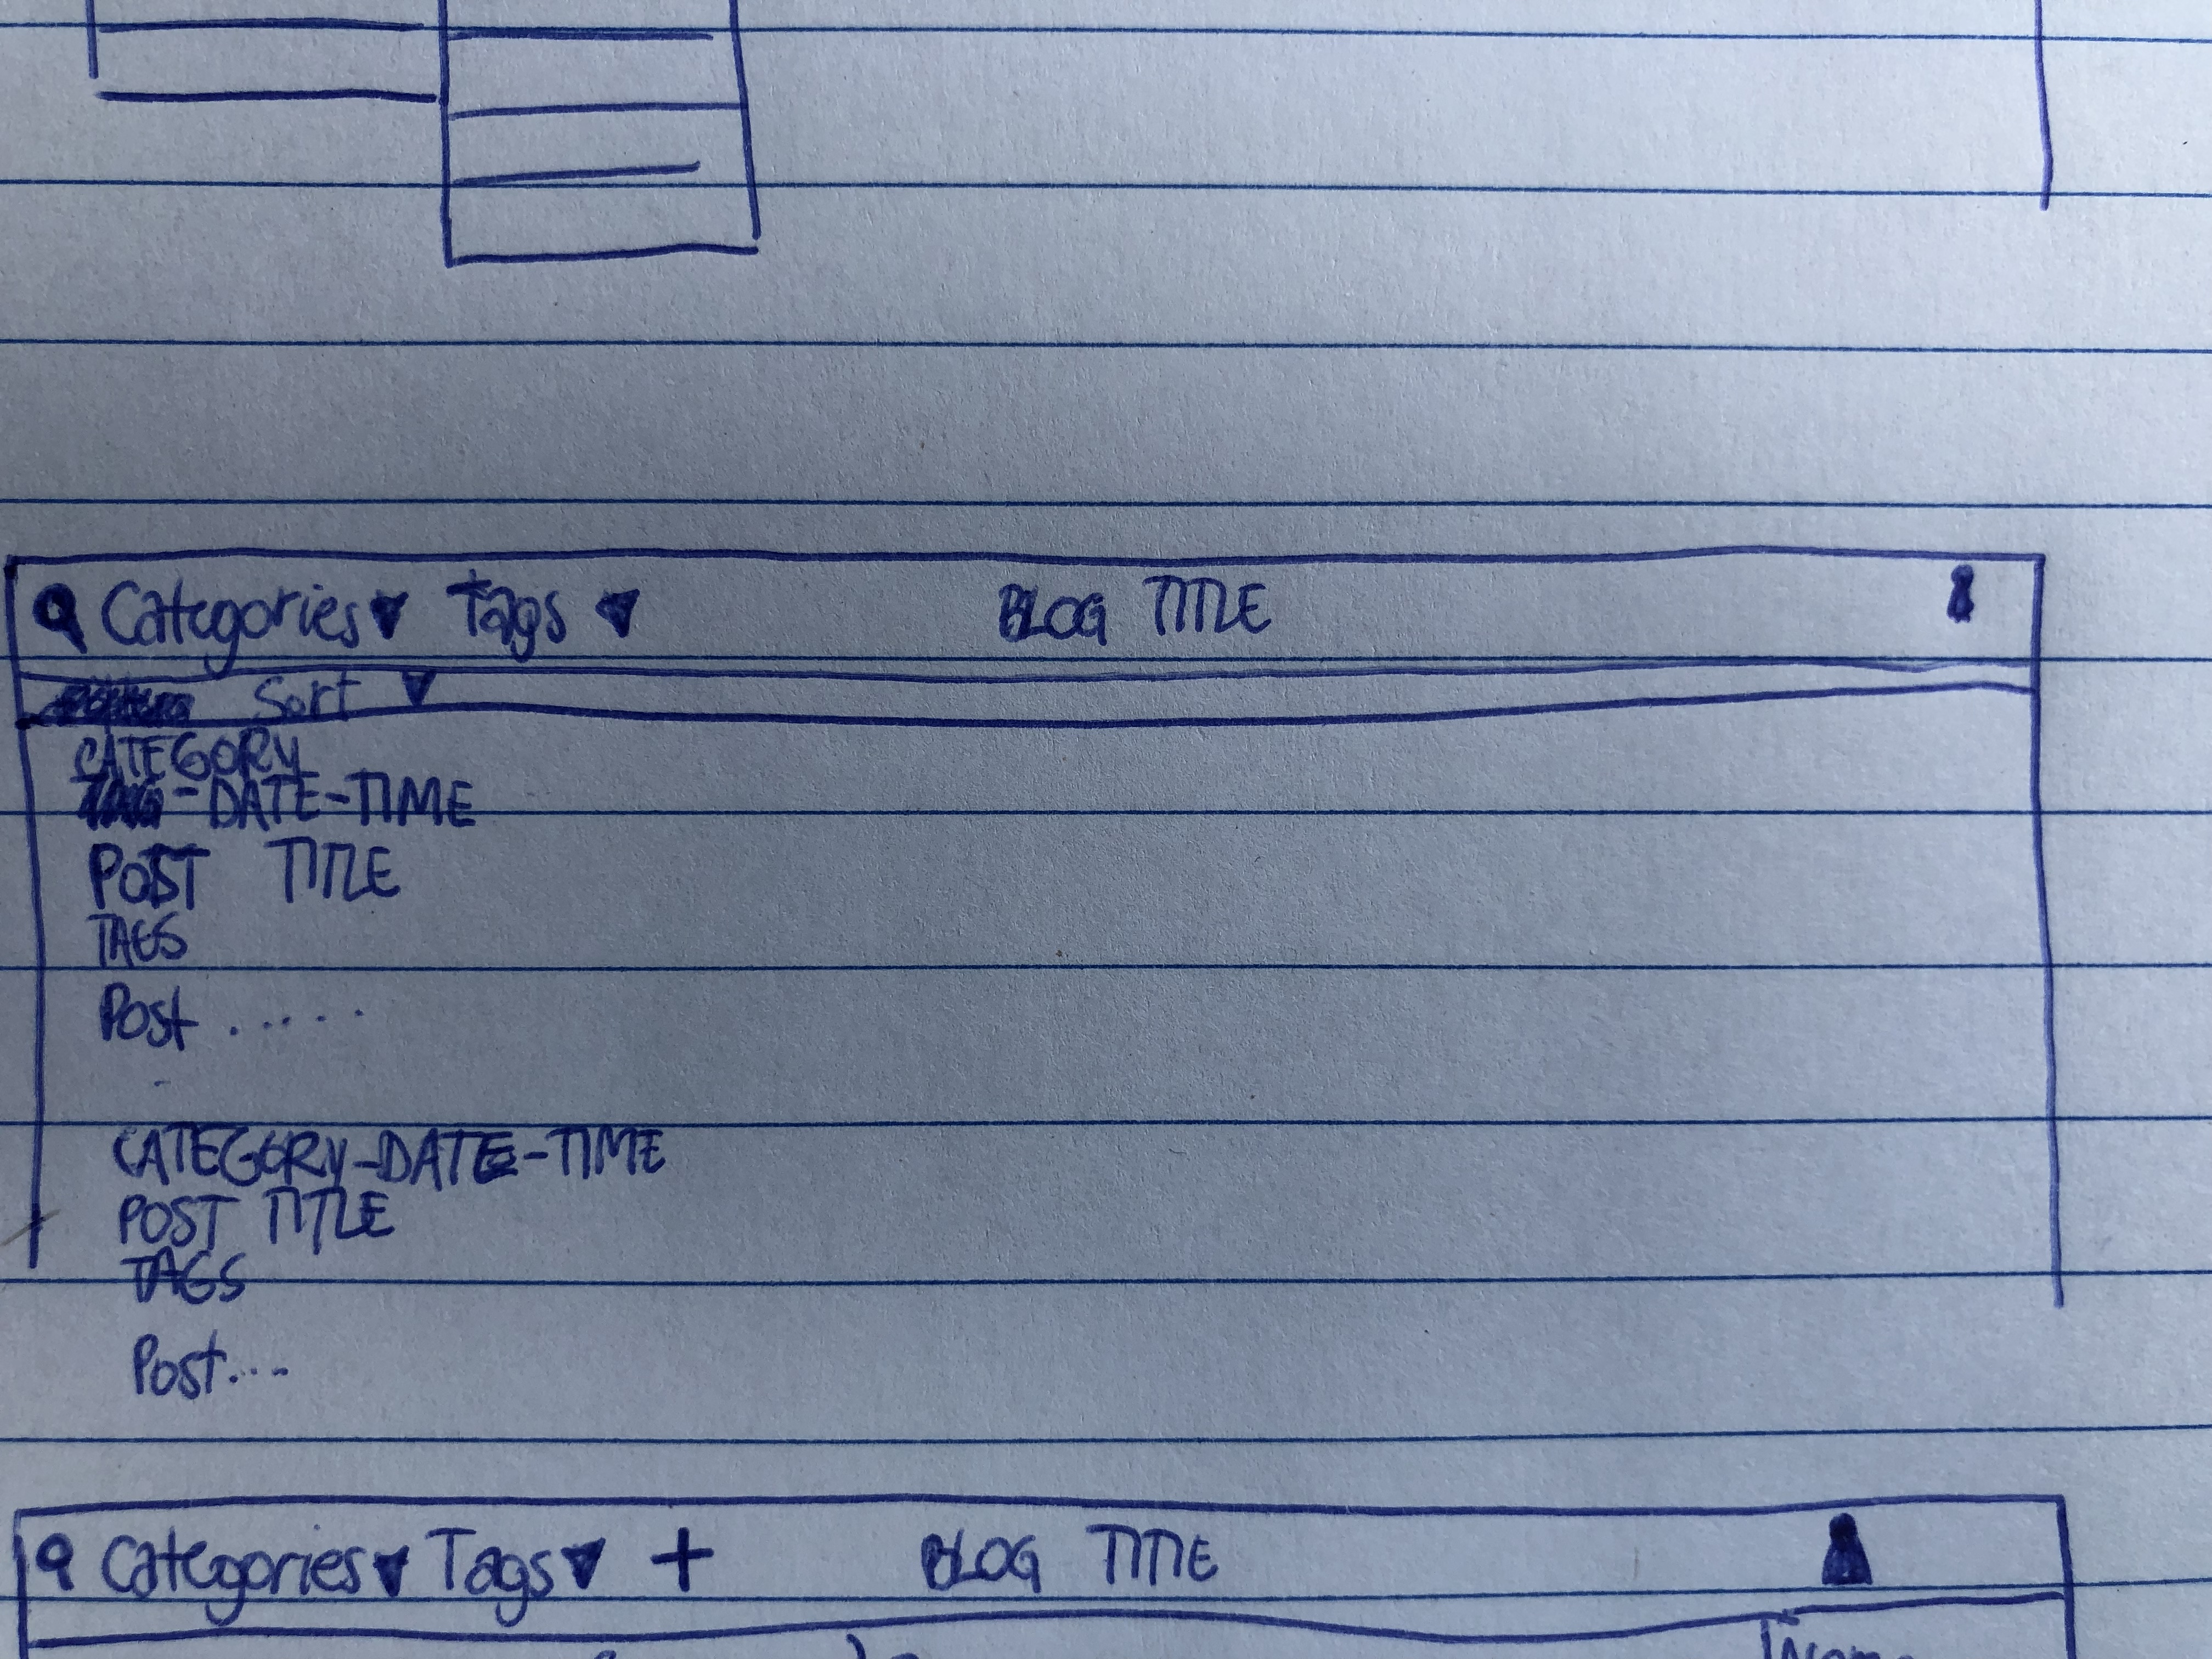 Categories Tags BLOG TITLE
Sort
CATEGORY
-DATE-TIME
POST TITLE
TAGS
Post .....
CATEGORY-DATE-TIME
POST TITLE
TAGS
Post....
Categories Tags + BLOG TITLE